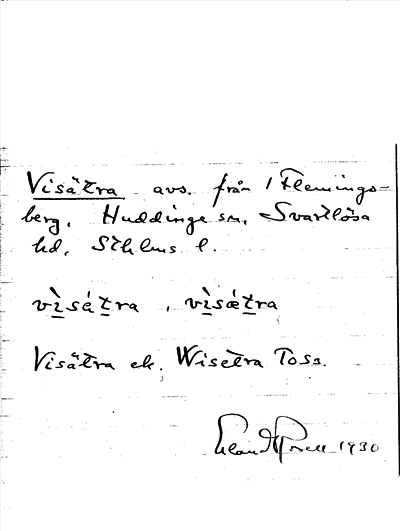 Visätra avs. från 1 Flemings-
berg, Huddinge sn, Svartlösa
hd, Sthlms l.
vìsátra, vìsǽtra
Visätra ek. Wisetra Toss.
1930